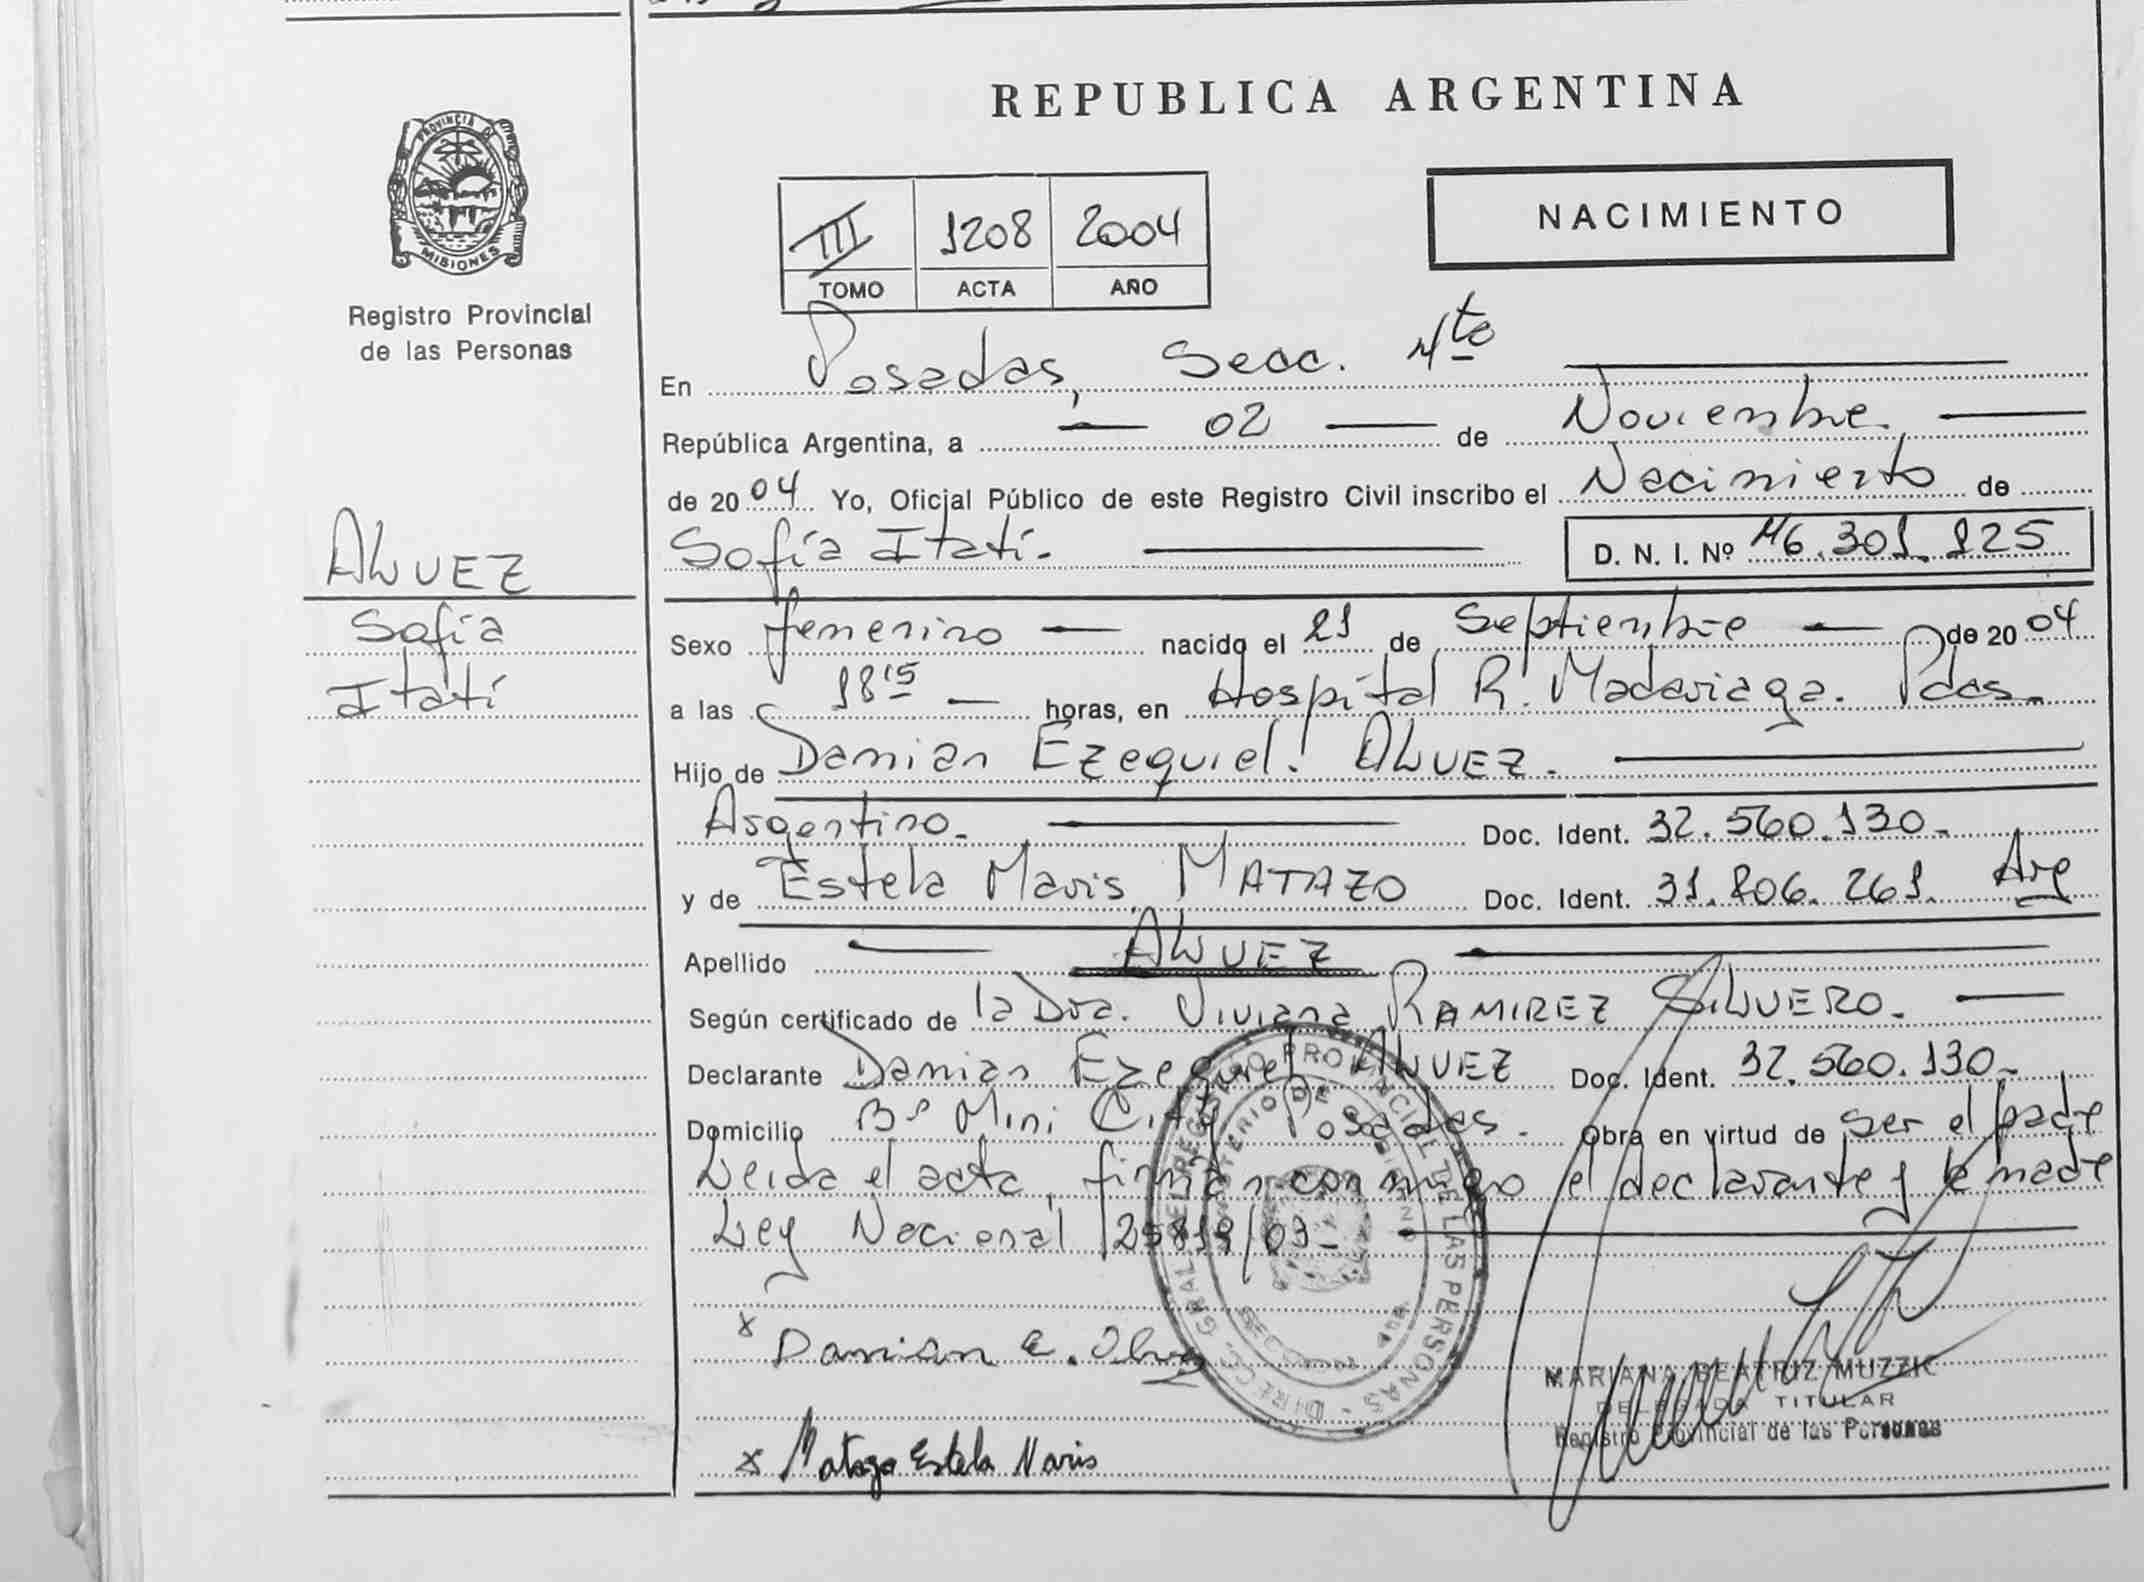 REPUBLICA ARGENTINA
PROVINCIA DE MISIONES
Registro Provincial
de las Personas
NACIMIENTO
III 1208 2004
TOMO ACTA AÑO
En Posadas, Secc. 4ta
República Argentina, a 02 de Noviembre
de 2004 Yo, Oficial Público de este Registro Civil inscribo el Nacimiento de
ALVEZ
Sofía Itatí
Sofía Itatí. D. N. I. Nº 46.301.125
Sexo femenino nacido el 21 de Septiembre de 2004
a las 18 15 horas, en Hospital R. Madariaga. Pdas.
Hijo de Damian Ezequiel ALVEZ.
Argentino. Doc. Ident. 32.560.130.
y de Estela Maris MATAZO Doc. Ident. Arg
Apellido ALVEZ
Según certificado de la Dra. Viviana RAMIREZ SILVERO.
Declarante Damian Ezequiel ALVEZ Doc. Ident. 32.560.130.
Domicilio Bº Mini City Posadas. Obra en virtud de ser el padre
Leida el acta, firman conmigo el declarante y la madre
Ley Nacional 25819/03.
DIRECC. GRAL DEL REGISTRO PROVINCIAL DE LAS PERSONAS
MINISTERIO DE GOBIERNO
x Damian E. Alvez
MARIANA BEATRIZ MUZZIC
DELEGADA TITULAR
Registro Provincial de las Personas
x Matazo Estela Maris